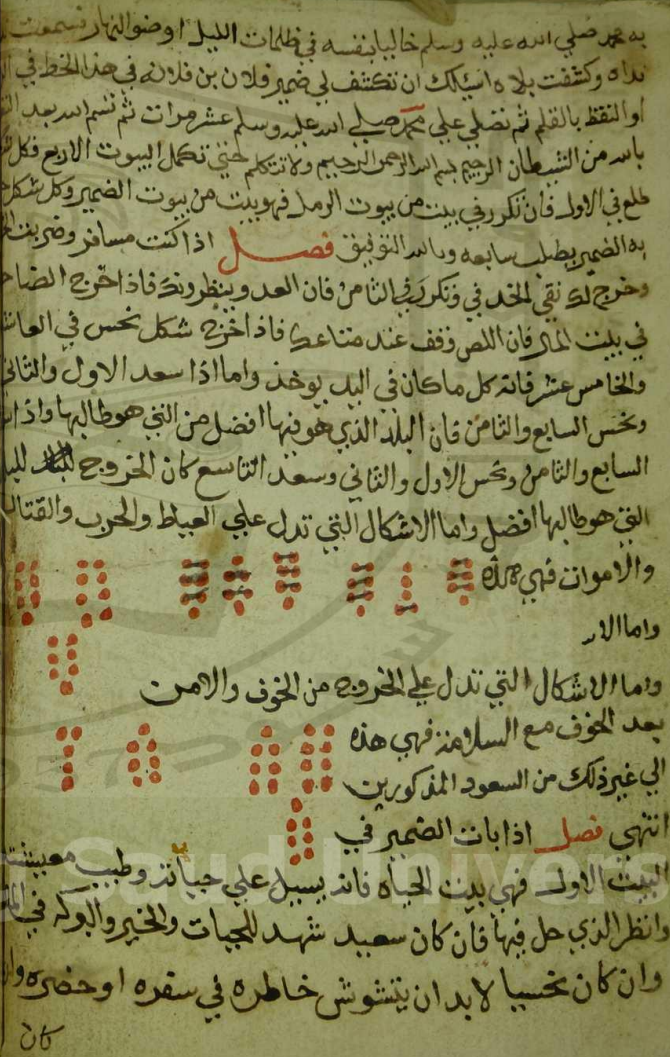 به محمد صلي الله عليه وسلم خاليا بنفسه في ظلمات الليل او ضو النهار
نداه وكشفت بلاه اسئلك ان تكشف لي ضمير فلان بن فلانه في هذا الخط في
او النقظ بالقلم ثم تصلي علي محمد صلي الله عليه وسلم عشر مرات ثم تسم الله بعد
بالله من الشيطان الرجيم بسم الله الرحمن الرحيم ولا تتكلم حتي تكمل البيوت الاربع فكل
طلع في الاول فان تكرر في بيت من بيوت الرمل فهو بيت من بيوت الضمير وكل شكل
به الضمير يطلب سابعه وبالله التوفيق فصل اذا كنت مسافر وضربت
وخرج لك نقي الخد في وتكرر في الثامن فان العدو ينظرونك فاذا اخرج
في بيت المال فان اللص وقف عند متاعك فاذا اخرج شكل نحس في
والخامس عشر فانه كل ما كان في اليد يوخذ واما اذا سعد الاول والثاني
ونحس السابع والثامن فان البلد الذي هو فيها افضل من التي هو طالبها واذا
السابع والثامن ونحس الاول والثاني وسعد التاسع كان الخروج
التي هو طالبها افضل واما الاشكال التي تدل علي العياط والحرب والقتال
والاموات فهي هذه
واما الار
واما الاشكال التي تدل علي الخروج من الخوف والامن
بعد الخوف مع السلامة فهي هذه
الي غير ذلك من السعود المذكورين
انتهي فصل اذا بات الضمير في
البيت الاول فهي بيت الحياه فانه يسيل علي حياته وطيب معيشته
وانظر الذي حل فيها فان كان سعيد شهد للحيات والخير والبركه في
وان كان نحسيا لابد ان يتشوش خاطره في سفره او حضره
كان
Saud Univers